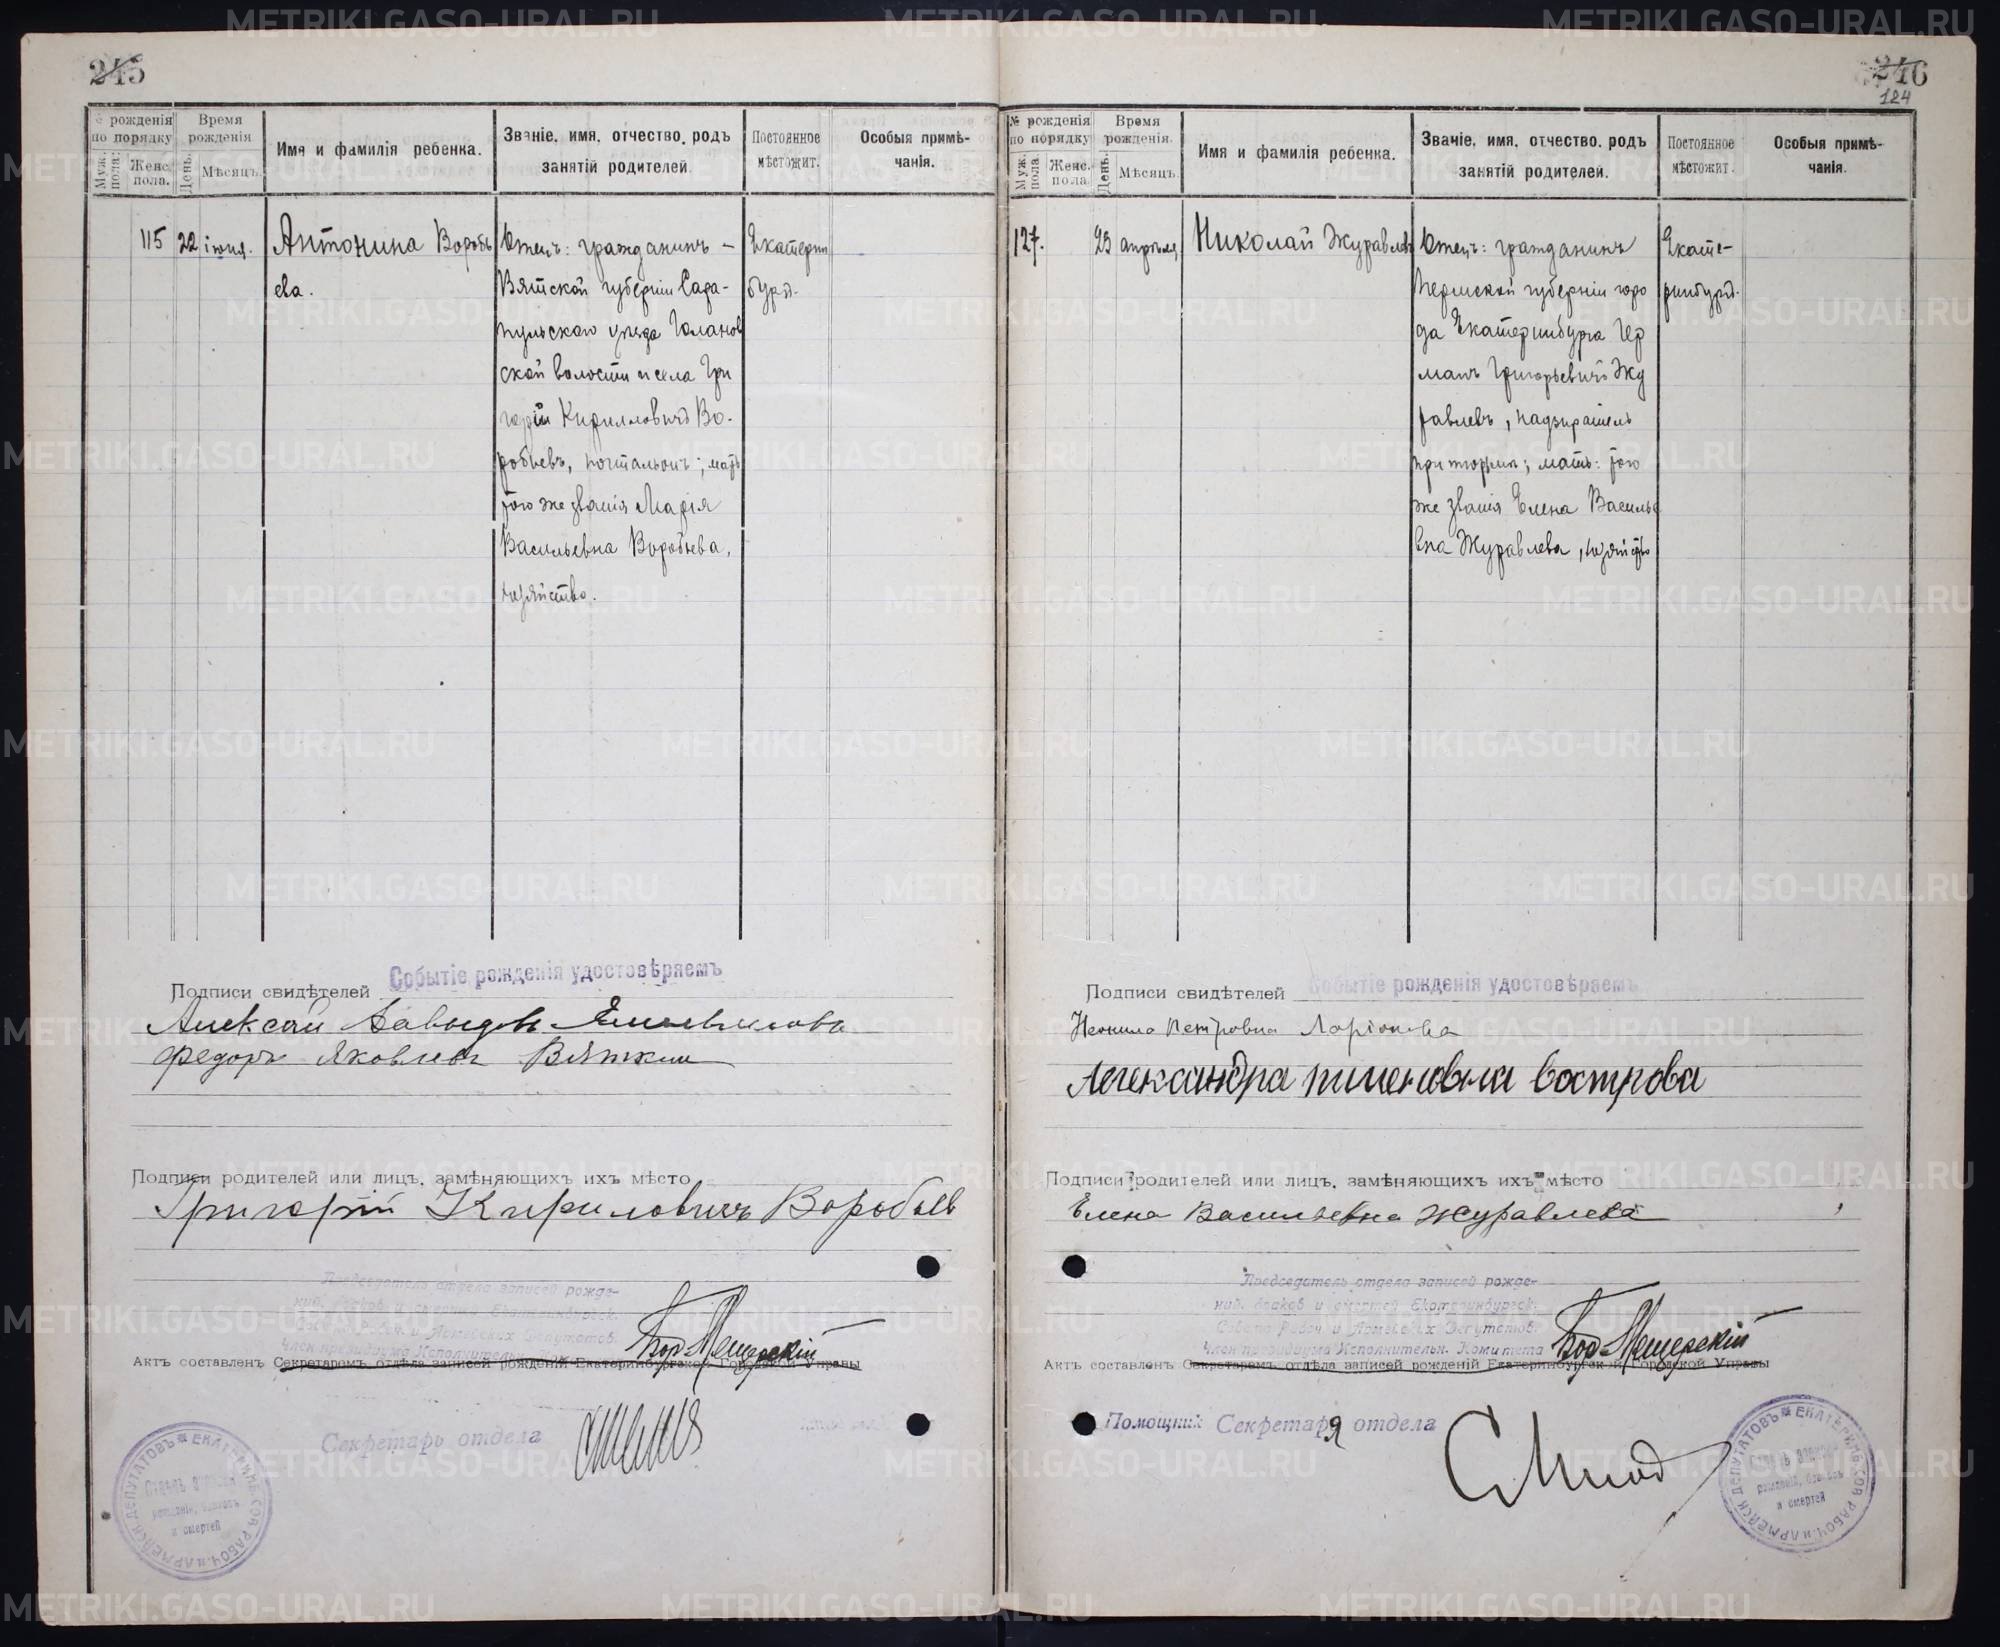 245
№ рожденія по порядку
Муж. пола.
Женс. пола.
Время рожденія
День.
Мѣсяцъ
Имя и фамилія ребенка.
Званіе, имя, отчество, родъ занятій родителей
Постоянное мѣстожит.
Особыя примѣчанія.
115
22
іюня.
Антонина Воробь
ева.
Отецъ: гражданинъ –
Вятской губерніи Сара-
пульскаго уѣзда
ской волости и села Гри
горій Кирилловичъ Во-
робьевъ, почтальонъ; мать
того же званія Марія
Васильевна Воробьева,
хозяйство.
Екатерин
бургъ.
Событіе рожденія удостовѣряемъ
Подписи свидѣтелей
Алексай
Федоръ Яковлевъ Вяткин
Подписи родителей или лицъ, замѣняющихъ ихъ мѣсто
Григорій Кириловичъ Воробьев
Предсѣдатель отдела записей рожде-
ний, браков и смертей Екатеринбургск.
Совета Рабоч. и Армейских Депутатов.
Член президиума Исполнительн.
Бор-Мещерскій
Актъ составленъ Секретаремъ отдѣла записей рожденій Екатеринбургской Городской Управы
Секретарь отдела
246
124
№ рожденія по порядку
Муж. пола.
Женс. пола
Время рожденія.
День.
Мѣсяцъ.
Имя и фамилія ребенка.
Званіе, имя, отчество, родъ занятій родителей.
Постоянное мѣстожит.
Особыя примѣчанія.
127.
23
апрѣля
Николай Журавлевъ
Отецъ: гражданинъ
Пермской губерніи горо
да Екатеринбурга Гер
манъ Григорьевичъ Жу
равлевъ, надзиратель
при тюрьмѣ; мать: того
же званія Елена Василье
вна Журавлева, хозяйство
Екате-
ринбургъ.
Событіе рожденія удостовѣряемъ
Подписи свидѣтелей
Неонила Петровна Ларіонова
Александра пименовна вострова
Подписи родителей или лицъ, замѣняющихъ ихъ мѣсто
Елена Васильевна Журавлева
Председатель отдела записей рожде-
ний, браков и смертей Екатеринбургск.
Совета Рабоч. и Армейских Депутатов.
Член президиума Исполнительн. Комитета
Бор-Мещерскій
Актъ составленъ Секретаремъ отдѣла записей рожденій Екатеринбургской Городской Управы
Помощник Секретаря отдела
METRIKI.GASO-URAL.RU